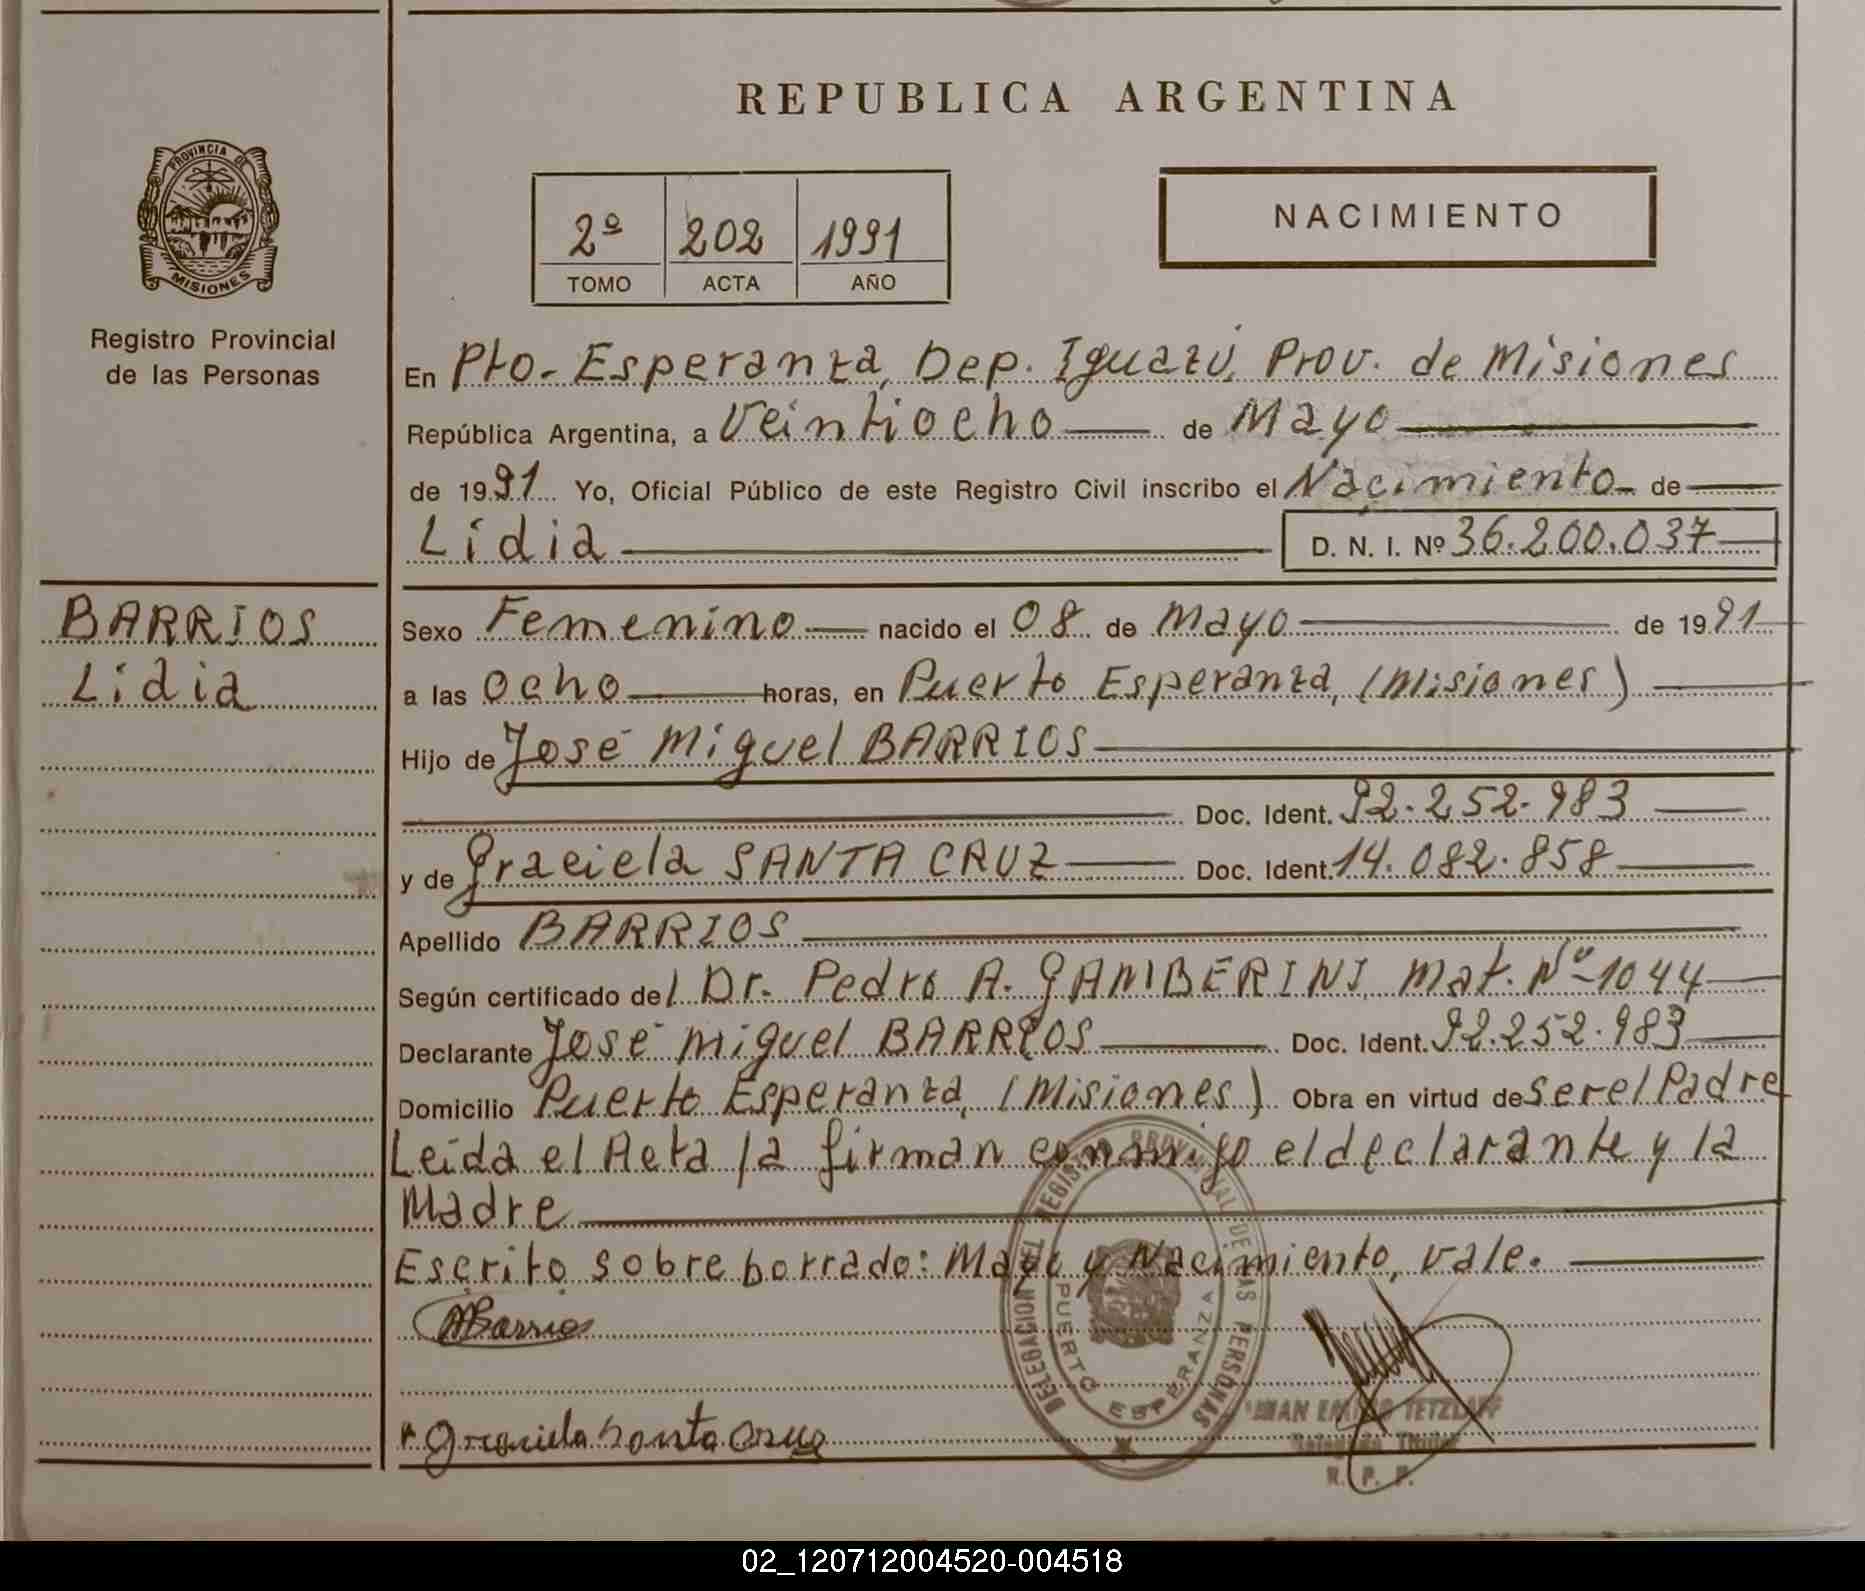 REPUBLICA ARGENTINA
PROVINCIA DE
MISIONES
Registro Provincial
de las Personas
2º 202 1991
TOMO ACTA AÑO
NACIMIENTO
En Pto. Esperanza, Dep. Iguazú, Prov. de Misiones
República Argentina, a Veintiocho de Mayo
de 1991 Yo, Oficial Público de este Registro Civil inscribo el Nacimiento de
Lidia D. N. I. Nº 36.200.037
BARRIOS
Lidia
Sexo Femenino nacido el 08 de Mayo de 1991
a las ocho horas, en Puerto Esperanza, (Misiones)
Hijo de José Miguel BARRIOS
Doc. Ident. 92.252.983
y de Graciela SANTA CRUZ Doc. Ident. 14.082.858
Apellido BARRIOS
Según certificado del Dr. Pedro A. GAMBERINI Mat. Nº 1044
Declarante José Miguel BARRIOS Doc. Ident. 92.252.983
Domicilio Puerto Esperanza, (Misiones) Obra en virtud de Ser el Padre
Leida el Acta la firman conmigo el declarante y la
Madre
Escrito sobre borrado: Mayo y Nacimiento, vale.
DELEGACION DEL REGISTRO PROVINCIAL DE LAS PERSONAS
PUERTO ESPERANZA
Barrios
Graciela Santa Cruz
TETZLAFF
Titular
R. P. P.
02_120712004520-004518